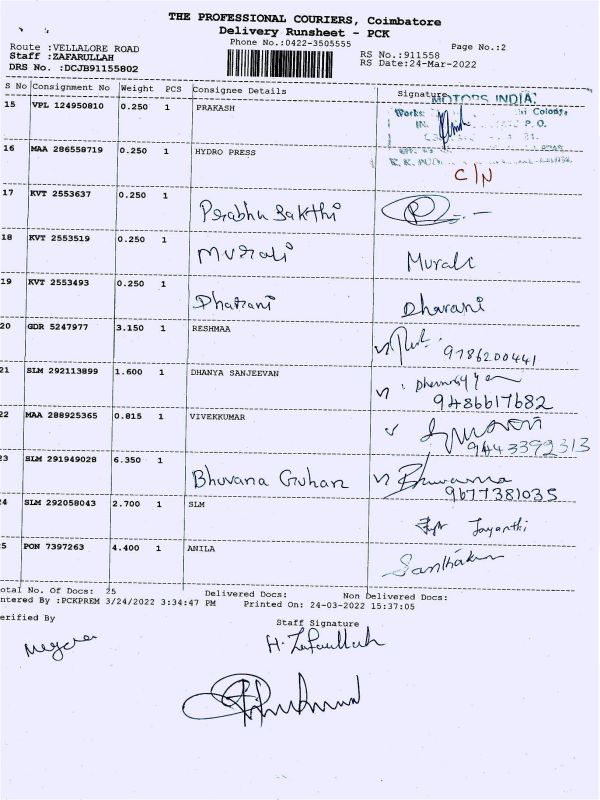 THE PROFESSIONAL COURIERS, Coimbatore
Delivery Runsheet - PCK
Phone No.:0422-3505555 Page No.:2
Route :VELLALORE ROAD RS No.:911558
Staff :ZAFARULLAH RS Date:24-Mar-2022
DRS No. :DCJB91155802
S No Consignment No Weight PCS Consignee Details Signature
MOTORS INDIA,
15 VPL 124950810 0.250 1 PRAKASH
Works: Colony
P.O.
16 MAA 286558719 0.250 1 HYDRO PRESS
C/N
17 KVT 2553637 0.250 1
Prabhu Sakthi
18 KVT 2553519 0.250 1
Murali Murali
19 KVT 2553493 0.250 1
Dharani Dharani
20 GDR 5247977 3.150 1 RESHMAA
9786200441
21 SLM 292113899 1.600 1 DHANYA SANJEEVAN
9486617682
22 MAA 288925365 0.815 1 VIVEKKUMAR
9443392313
23 SLM 291949028 6.350 1
Bhuvana Guhan Bhuvana
9677381035
24 SLM 292058043 2.700 1 SLM
Jayanthi
25 PON 7397263 4.400 1 ANILA
otal No. Of Docs: 25 Delivered Docs: Non Delivered Docs:
ntered By :PCKPREM 3/24/2022 3:34:47 PM Printed On: 24-03-2022 15:37:05
erified By Staff Signature
H. Zafarullah